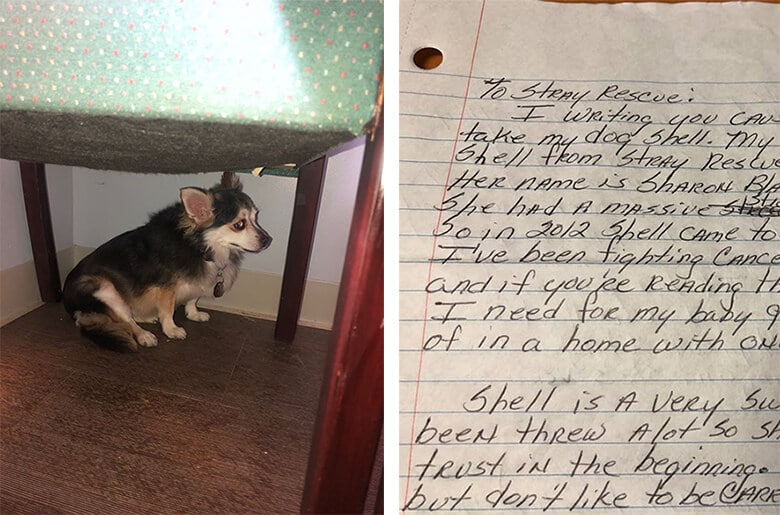 To Stray Rescue:
I writing you cau
take my dog Shell. My
Shell from Stray Rescu
Her name is Sharon
She had a massive
So in 2012 Shell came to
I've been fighting Cance
and if you're Reading th
I need for my baby
of in a home with on
Shell is a very Su
been threw alot so sh
trust in the beginning.
but don't like to be care